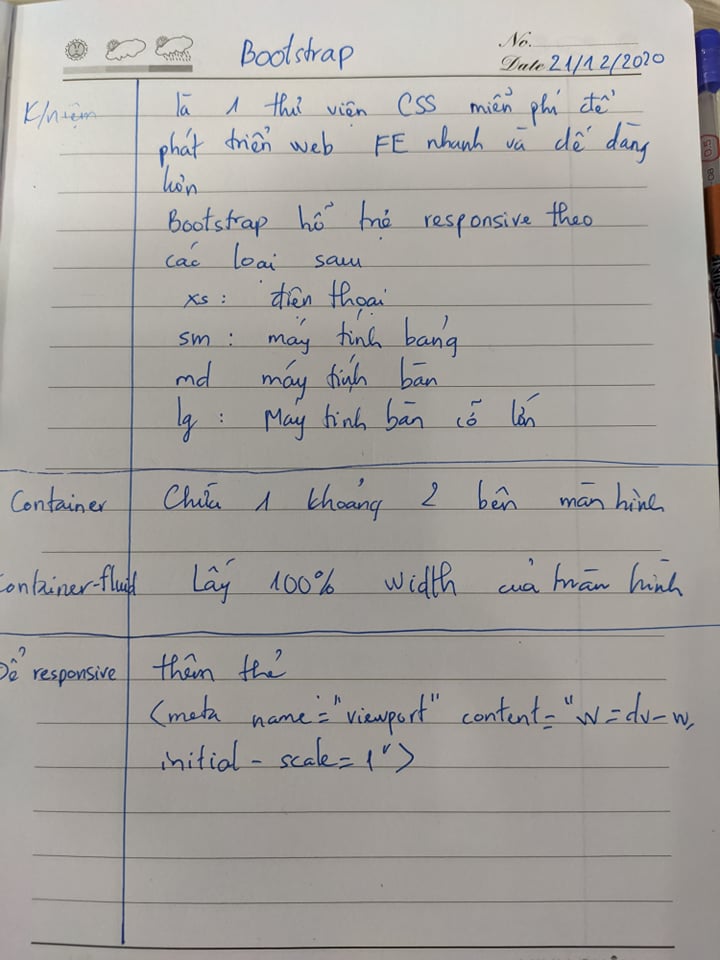 Bootstrap
No.
Date 21/12/2020
K/niệm
là 1 thử viện CSS miển phí để
phát triển web FE nhanh và dế dàng
hơn
Bootstrap hổ trợ responsive theo
các loai sau
xs : điện thoại
sm : máy tính bảng
md máy tính bàn
lg : Máy tinh bàn cỡ lớn
Container
Chừa 1 khoảng 2 bên màn hình
Container-fluid
Lấy 100% width của màn hình
Để responsive
thêm thẻ
<meta name="viewport" content="W=dv-w,
initial-scale=1">
0.5